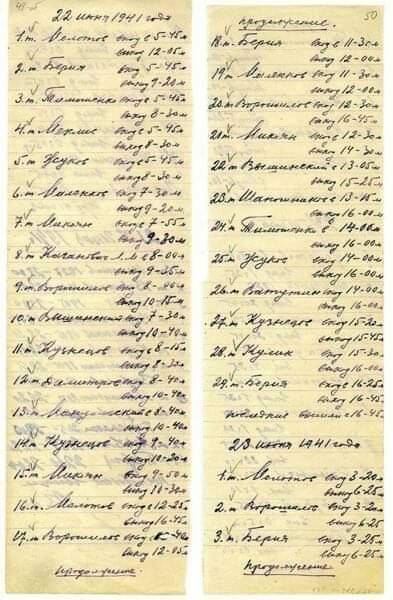 49 об
22 июня 1941 года
1. т. Молотов вход в 5-45 м
выход 12-05 м
2. т. Берия вход 5-45 м
выход 9-20 м
3. т. Тимошенко вход в 5-45 м
выход 8-30 м
4. т. Мехлис вход в 5-45 м
выход 8-30 м
5. т. Жуков вход в 5-45 м
выход 8-30 м
6. т. Маленков вход 7-30 м
выход 9-20 м
7. т. Микоян вход в 7-55 м
выход 9-30 м
8. т. Каганович Л.М. в 8-00 м
выход 9-35 м
9. т. Ворошилов вход 8-00 м
выход 10-15 м
10. т. Вышинский вход 7-30 м
выход 10-40 м
11. т. Кузнецов вход в 8-15 м
выход 8-30 м
12. т. Димитров вход 8-40 м
выход 10-40 м
13. т. Мануильский в 8-40 м
выход 10-40 м
14. т. Кузнецов вход 9-40 м
выход 10-20 м
15. т. Микоян вход 9-50 м
выход 10-30 м
16. т. Молотов вход в 12-25 м
выход 16-45 м
17. т. Ворошилов вход в -40 м
выход 12-05 м
продолжение.
50
продолжение.
18. т. Берия вход в 11-30 м
выход 12-00 м
19. т. Маленков вход 11-30 м
выход 12-00 м
20. т. Ворошилов вход 12-30 м
выход 16-45 м
21. т. Микоян вход в 12-30 м
выход 14-30 м
22. т. Вышинский в 13-05 м
выход 15-25 м
23. т. Шапошников в 13-15 м
выход 16-00 м
24. т. Тимошенко в 14-00 м
выход 16-00 м
25. т. Жуков вход 14-00 м
выход 16-00 м
26. т. Ватутин вход 14-00 м
выход 16-00 м
27. т. Кузнецов вход 15-20 м
выход 15-45 м
28. т. Кулик вход 15-30 м
выход 16-00 м
29. т. Берия вход в 16-25 м
выход 16-45 м
последние вышли в 16-45 м
23 июня 1941 года
1. т. Молотов вход 3-20 м
выход 6-25 м
2. т. Ворошилов вход 3-20 м
выход 6-25
3. т. Берия вход 3-25 м
выход 6-25 м
продолжение